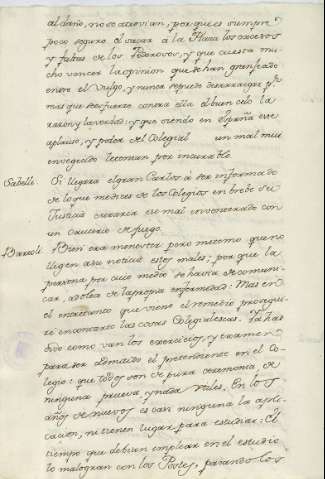 al daño, no se atrevian, porque es siempre
poco seguro el sacar à la Plaza los excesos
y faltas de los Poderosos, y que cuesta mu-
cho vencer la opinion que se han grangeado
entre el Vulgo, y nunca se puede desarraygar p.r
mas que se esfuerze contra ella el buen celo la
razon y la verdad: y que siendo en España ese
aplauso, y poder del Colegial un mal muy
envegecido le tienen por incurable.
Sabelli. Si llegara el gran Carlos à ser informado
de lo que medices de los Colegios en brebe su
Justicia curaria ese mal envegecido con
un Cauterio de fuego.
Barzoli. Bien era menester pero me temo que no
llegen à su noticia estos males; por que la
persona por cuio medio se havia de comuni-
car, adolece de la propia enfermedad: Mas en
el entretanto que viene el remedio prosegui-
re en contarte las cosas Colegialescas. Ya has
oido como van los exercicios, y examen
para ser admitido el pretendiente en el Co-
legio: que todos son de pura ceremonia, de
ninguna prueva, y nada reales. En los
años de nuevos es casi ninguna la aplic-
cacion, ni tienen lugar para estudiar: El
tiempo que debian emplear en el estudio
lo malogran con los Postes, parando los